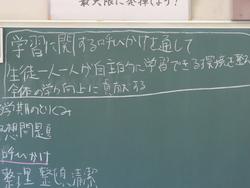 最大限に発揮しよう！
学習に関する呼びかけを通して
生徒一人一人が自主的に学習できる環境を整え
全体の学力向上に貢献する
学期のとりくみ
想問題
呼びかけ
整理 整頓 清潔